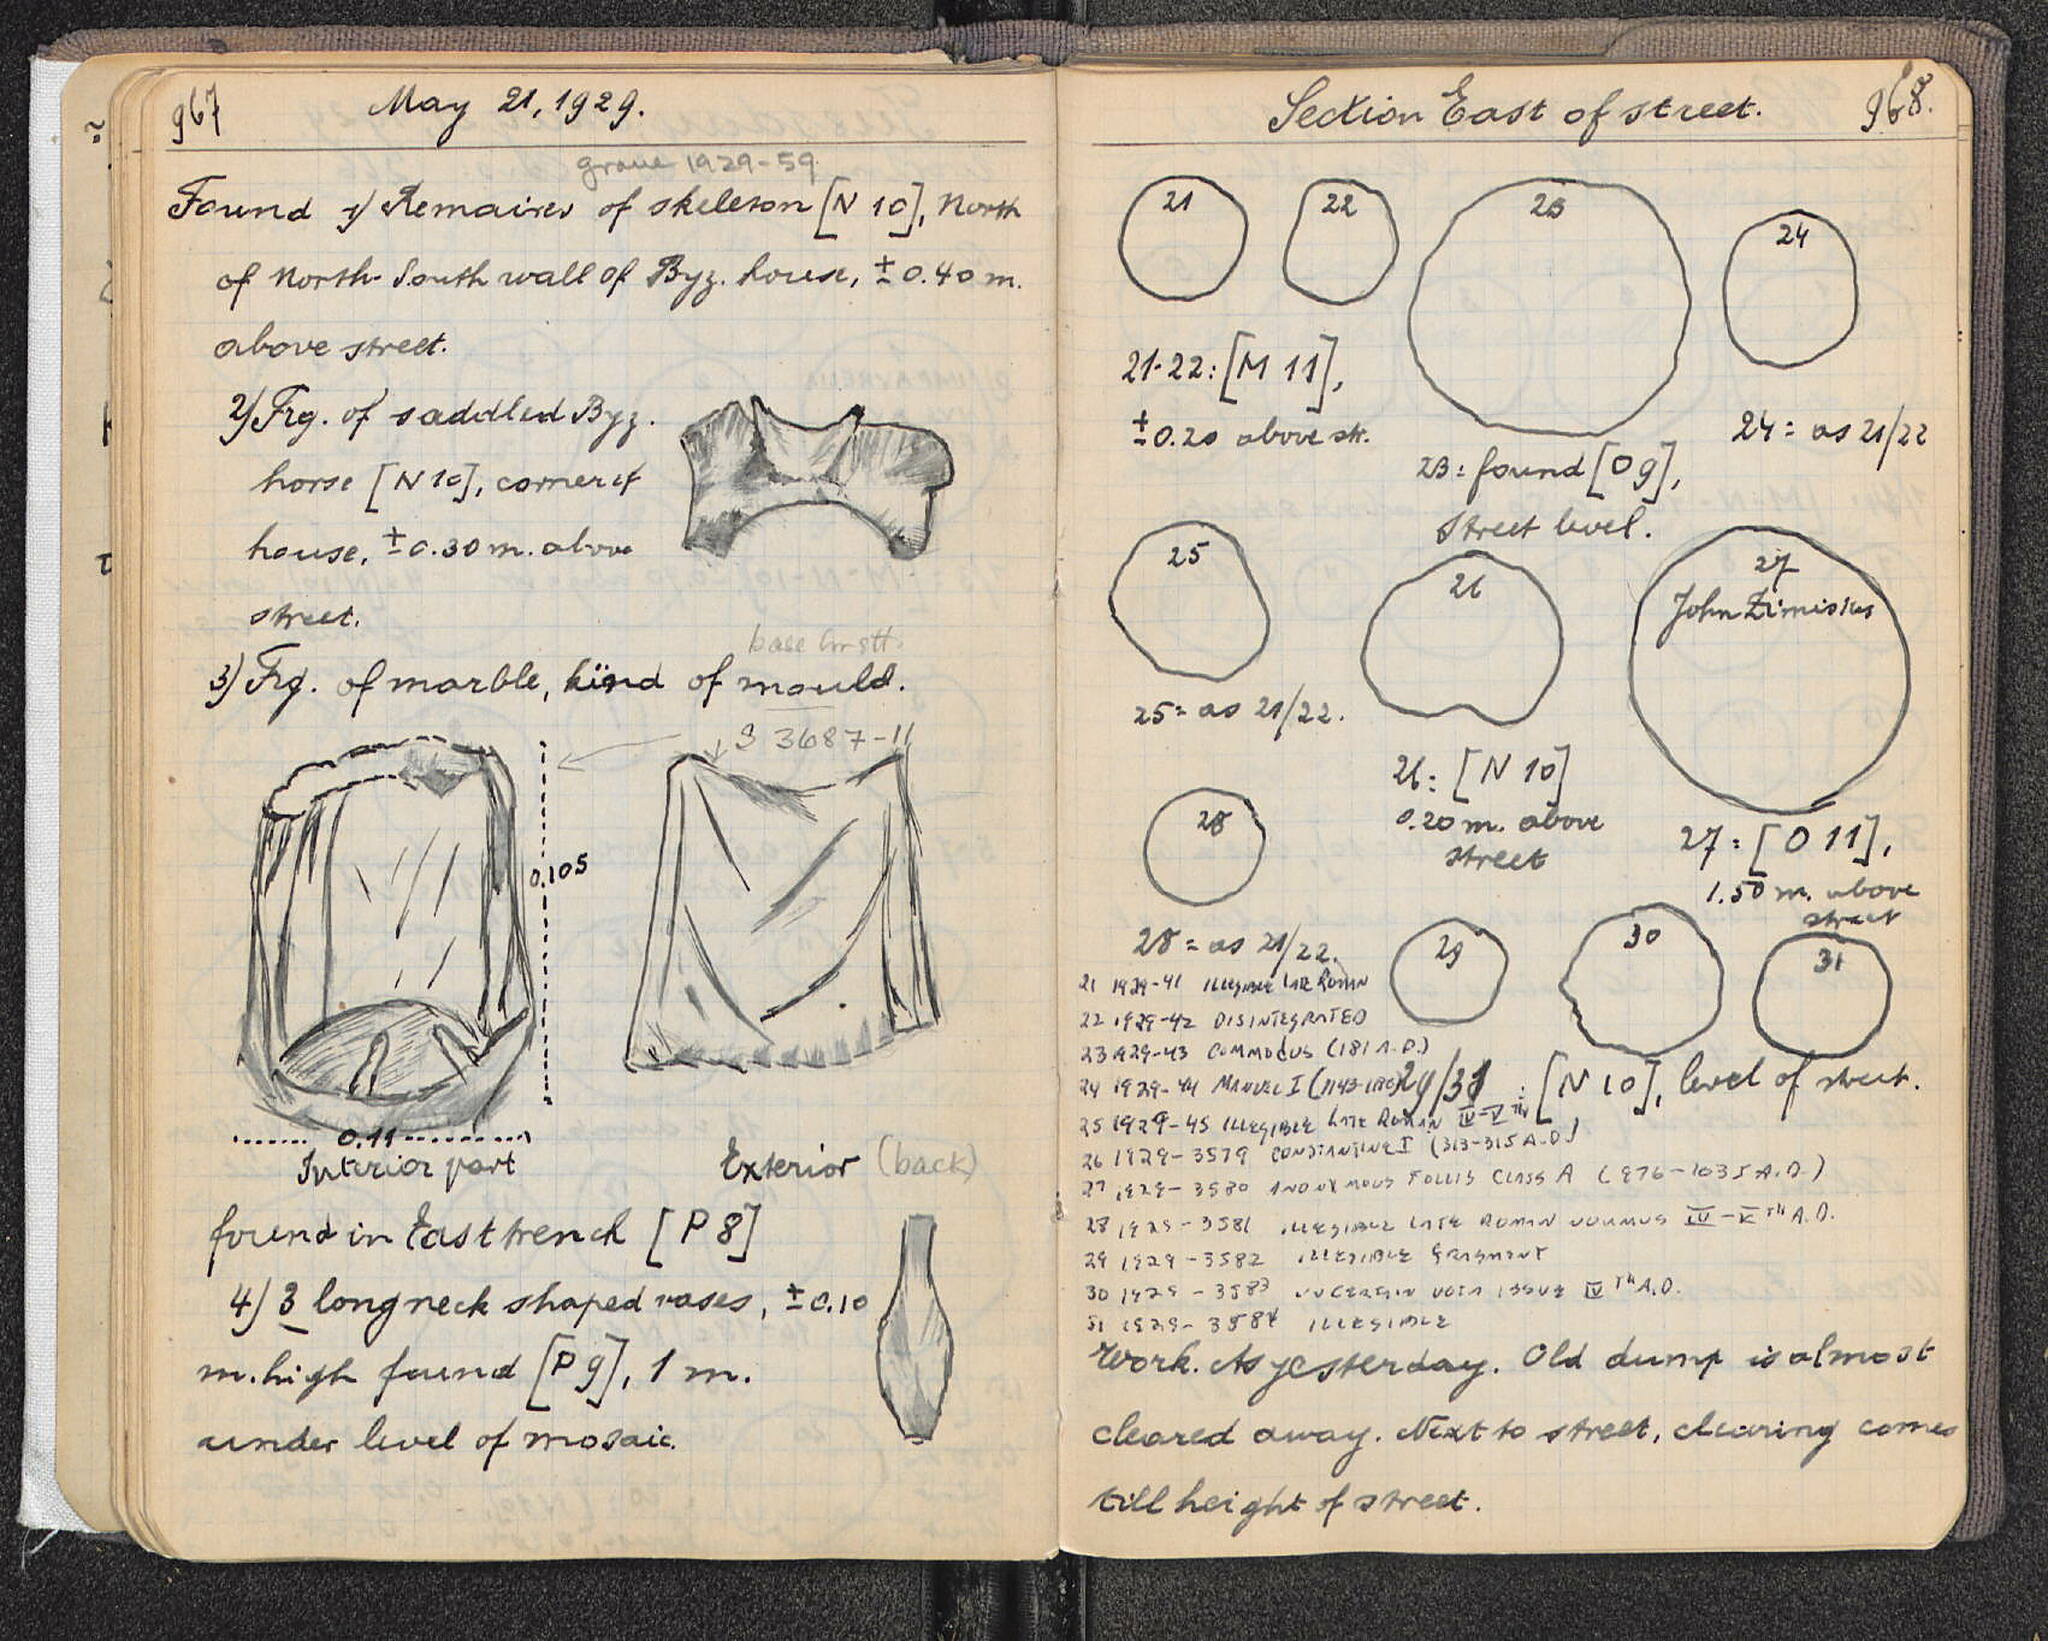 967
May 21, 1929.
grave 1929-59
Found 1) Remaines of skeleton [N 10], North
of North-South wall of Byz. house, ± 0.40 m.
above street.
2) Frg. of saddled Byz.
horse [N 10], corner of
house, ± 0.30 m. above
street.
base
3) Frg. of marble, kind of mould.
S 3687-11
0.105
0.11
Interior part
Exterior (back)
found in East trench [P 8]
4) 3 long neck shaped vases, ± 0.10
m. high found [P 9], 1 m.
under level of mosaic.
Section East of street.
968.
21
22
23
24
21-22: [M 11],
± 0.20 above str.
24 = as 21/22
23: found [O 9],
street level.
25
26
27
John Zimiskes
25 = as 21/22.
26: [N 10]
0.20 m. above
street
27: [O 11],
1.50 m. above
street
28
28 = as 21/22.
29
30
31
29/31: [N 10], level of street.
21 1929-41 ILLEGIBLE LATE ROMAN
22 1929-42 DISINTEGRATED
23 1929-43 COMMODUS (181 A.D.)
24 1929-44 MANUEL I (1143-1180)
25 1929-45 ILLEGIBLE LATE ROMAN IV-VTH
26 1929-3579 CONSTANTINE I (313-315 A.D.)
27 1929-3580 ANONYMOUS FOLLIS CLASS A (976-1035 A.D.)
28 1929-3581 ILLEGIBLE LATE ROMAN NUMMUS IV-VTH A.D.
29 1929-3582 ILLEGIBLE FRAGMENT
30 1929-3583 UNCERTAIN VOTA ISSUE IVTH A.D.
31 1929-3584 ILLEGIBLE
Work. As yesterday. Old dump is almost
cleared away. Next to street, clearing comes
till height of street.